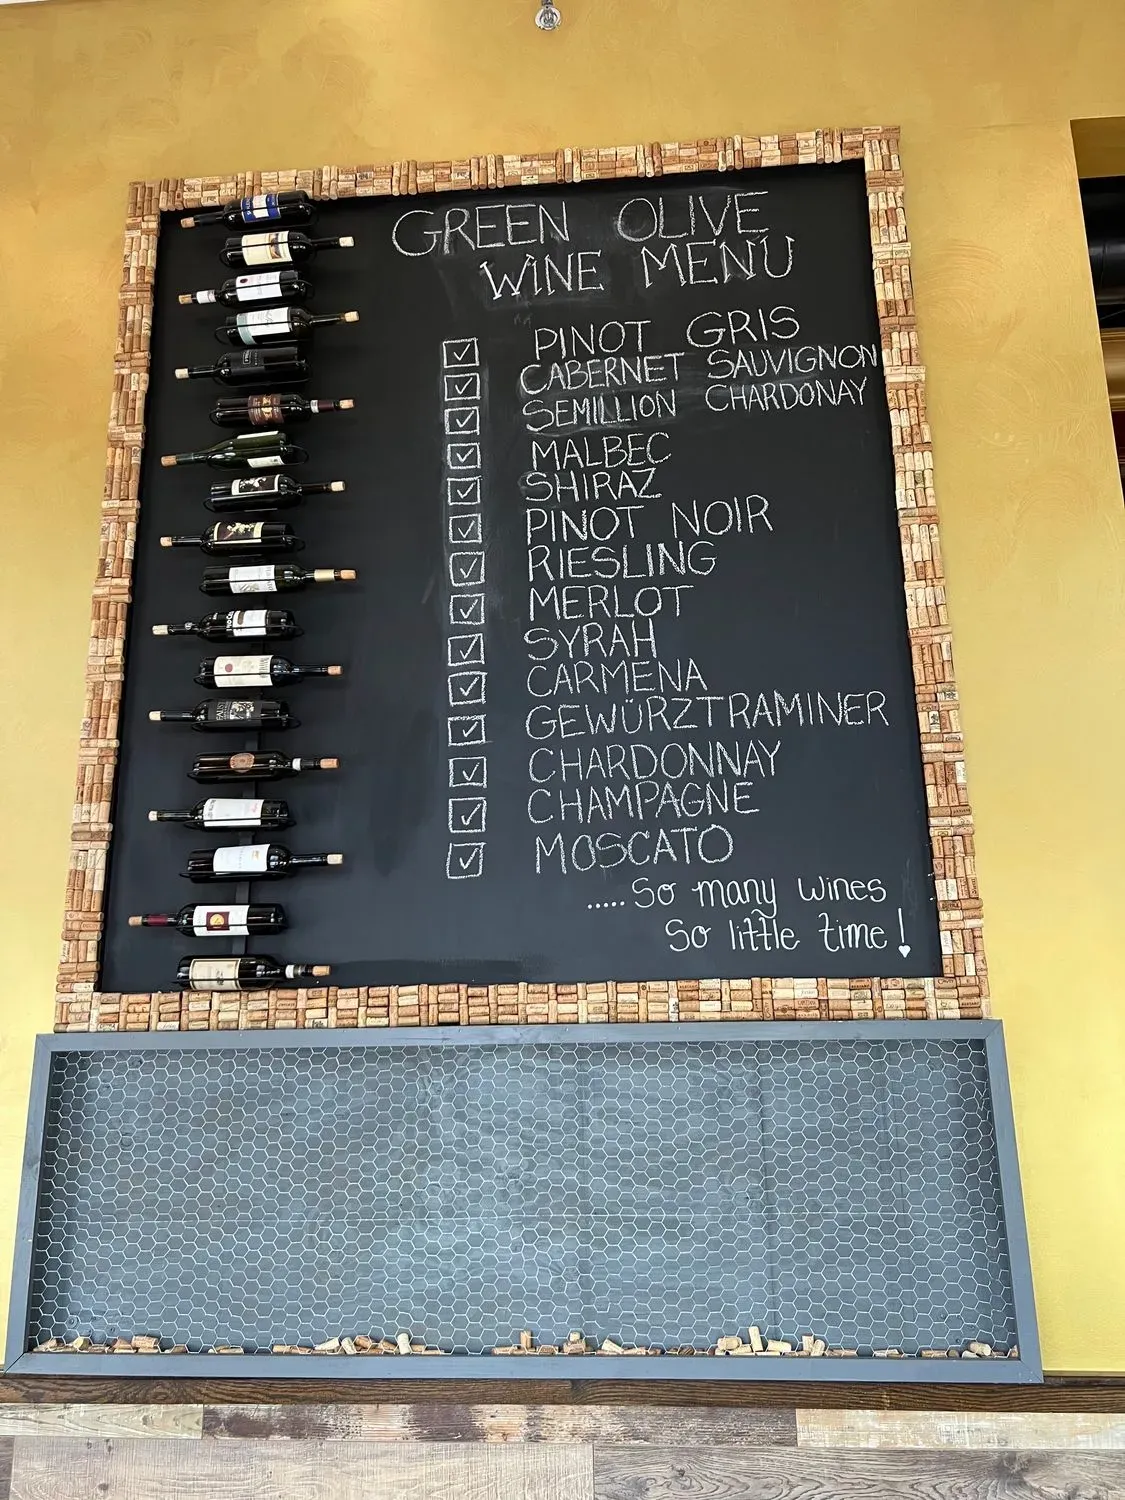 GREEN OLIVE
WINE MENU
PINOT GRIS
CABERNET SAUVIGNON
SEMILLION CHARDONAY
MALBEC
SHIRAZ
PINOT NOIR
RIESLING
MERLOT
SYRAH
CARMENA
GEWÜRZTRAMINER
CHARDONNAY
CHAMPAGNE
MOSCATO
.....So many wines
So little time!